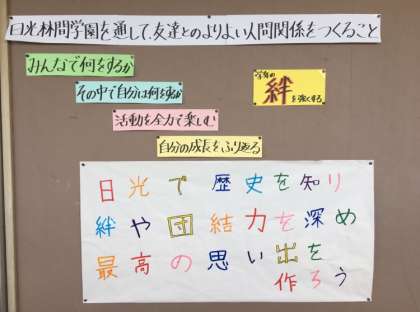 日光林間学園を通して、友達とのよりよい人間関係をつくること
みんなで何をするか
その中で自分は何をするか
活動を全力で楽しむ
自分の成長をふり返る
学年の
絆
を強くする
日光で歴史を知り
絆や団結力を深め
最高の思い出を
作ろう